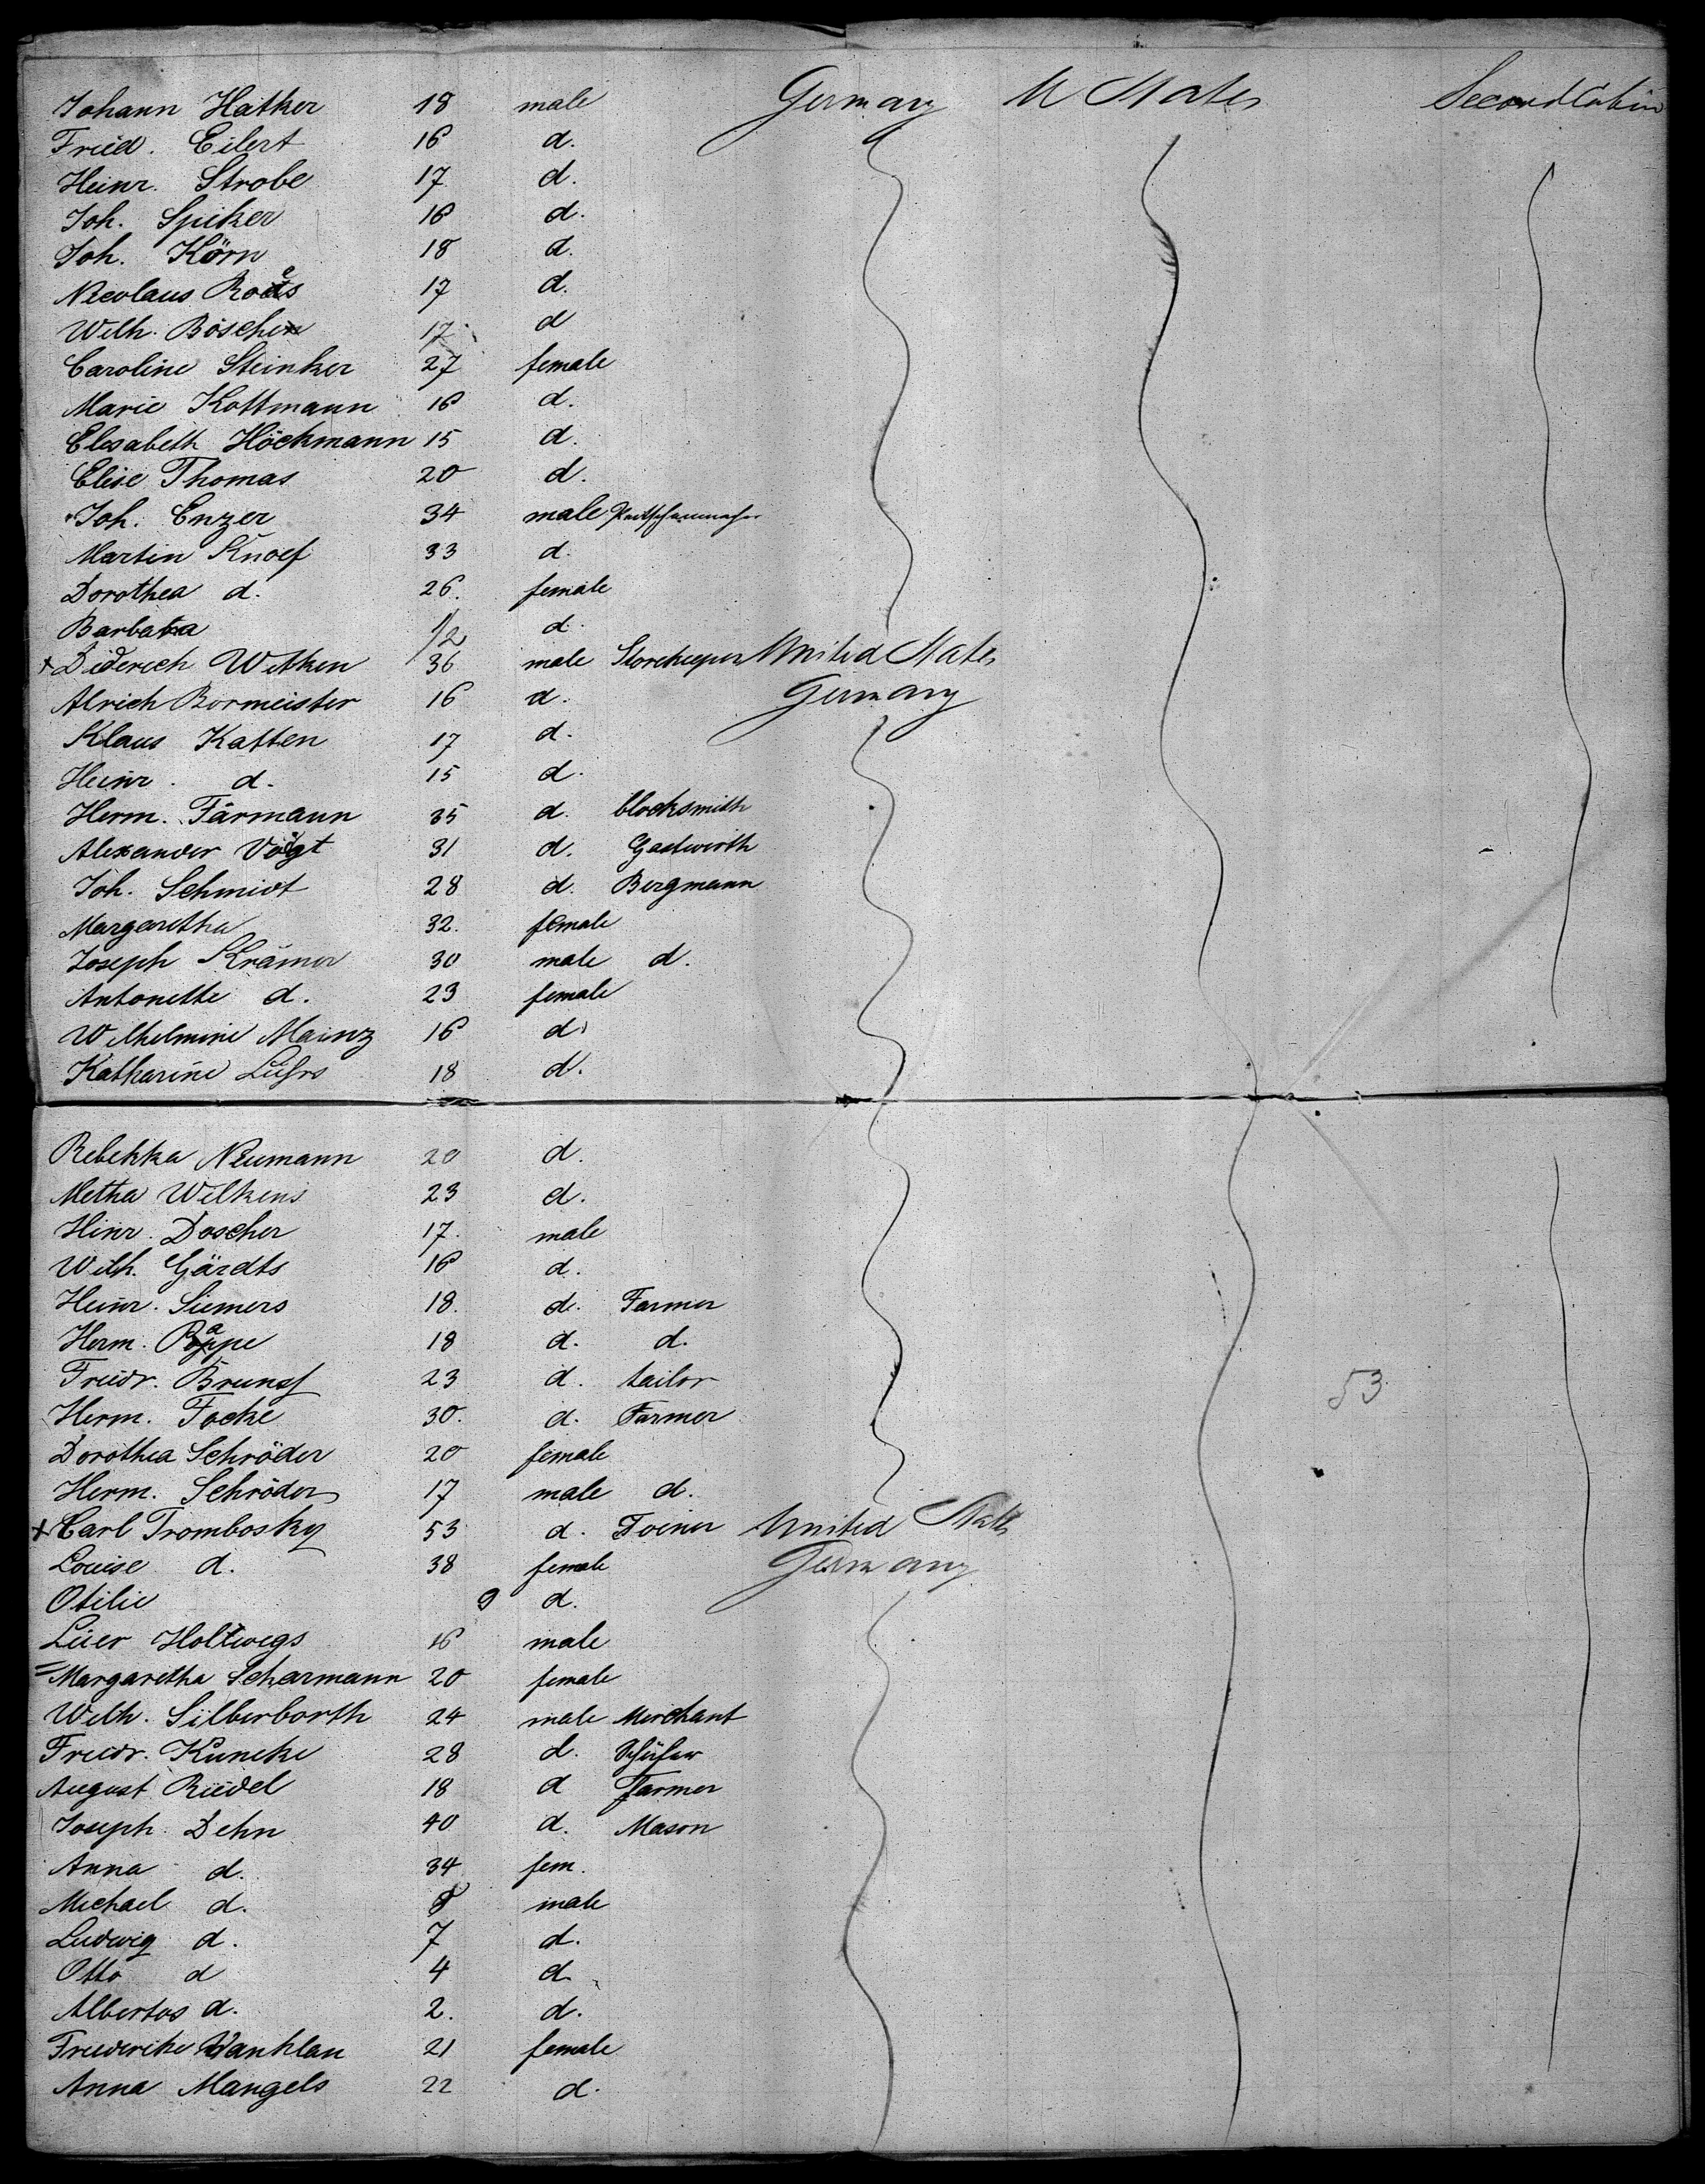 Johann Hatker 18 male Germany U States Second Cabin
Fried. Eilert 16 d.
Heinr. Strobe 17 d.
Joh. Spiker 16 d.
Joh. Körn 18 d.
Nicolaus 17 d.
Wilh. Böschen 17 d
Caroline Steinker 27 female
Marie Kottmann 16 d.
Elesabeth Höckmann 15 d.
Elise Thomas 20 d.
Joh. Enzer 34 male
Martin Knoef 33 d.
Dorothea d. 26. female
Barbara 1/2 d.
+ Diderich Witken 36 male Storekeeper United States
Alrich Bormeister 16 d. Germany
Klaus Katten 17 d.
Heinr. d. 15 d.
Herm. Färmann 35 d. blocksmith
Alexander Vogt 31 d. Gastwirth
Joh. Schmidt 28 d. Bergmann
Margaretha 32. female
Joseph Krämer 30 male d.
Antonette d. 23 female
Wilhelmine Mainz 16 d.
Katharine Lührs 18 d.
Rebekka Neumann 20 d.
Metha Wilkens 23 d.
Hinr. Doscher 17. male
Wilh. Gärdts 16 d.
Heinr. Siemers 18. d. Farmer
Herm. Pappe 18 d. d.
Friedr. Bruns 23 d. tailor
53
Herm. Focke 30. d. Farmer
Dorothea Schröder 20 female
Herm. Schröder 17 male d.
+ Carl Trombosky 53 d. Toiner United States
Louise d. 38 female Germany
Otilie 9 d.
Lüer Holtwegs 16 male
Margaretha Scharmann 20 female
Wilh. Silberborth 24 male Merchant
Friedr. Kuncke 28 d.
August Riedel 18 d Farmer
Joseph Dehn 40 d. Mason
Anna d. 34 fem.
Michael d. 8 male
Ludwig d. 7 d.
Otto d 4 d.
Albertos d. 2. d.
Friederike Wanklau 21 female
Anna Mangels 22 d.